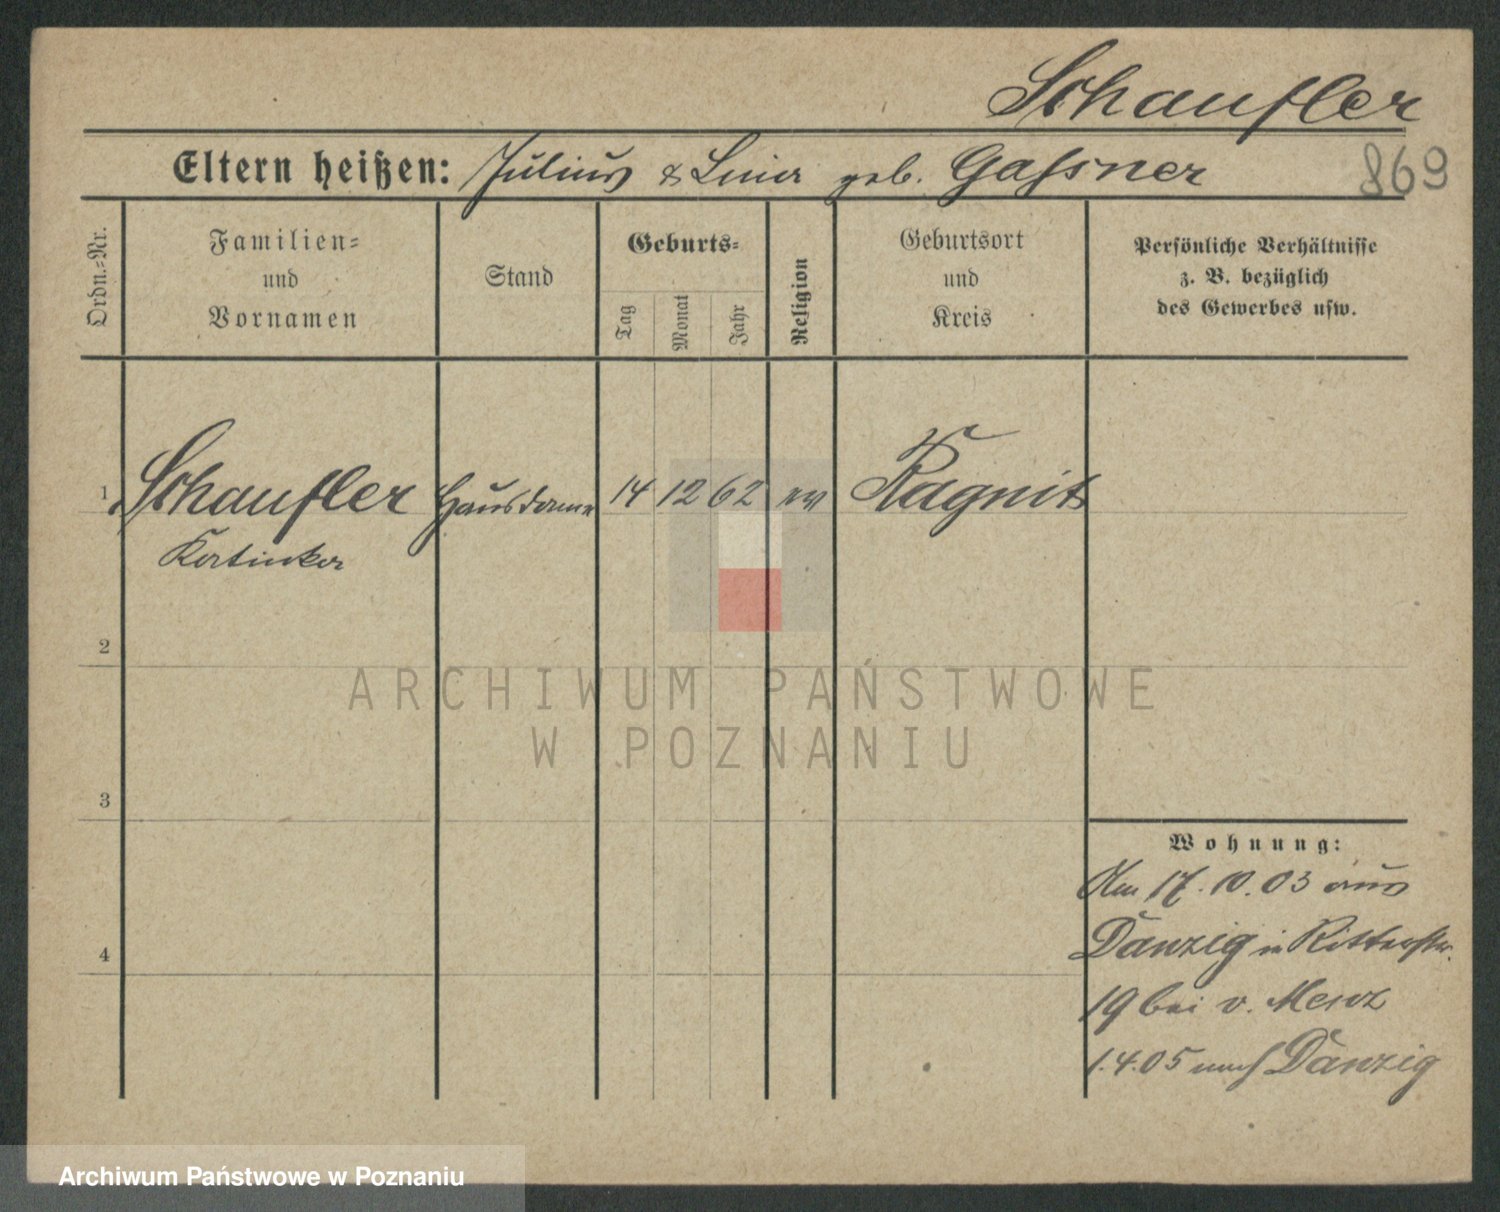 Schaufler
Eltern heißen: Julius & Lina geb. Gassner
869
Ordn.-Nr.
Familien-
und
Vornamen
Stand
Geburts-
Tag
Monat
Jahr
Religion
Geburtsort
und
Kreis
Persönliche Verhältnisse
z. B. bezüglich
des Gewerbes usw.
1 Schaufler Hausdame 14 12 62 ev Ragnit
2
3
4
Wohnung:
Am 17.10.03 aus
Danzig in Ritterstr.
19 bei v. Menz
1.4.05 nach Danzig
ARCHIWUM PAŃSTWOWE
W POZNANIU
Archiwum Państwowe w Poznaniu